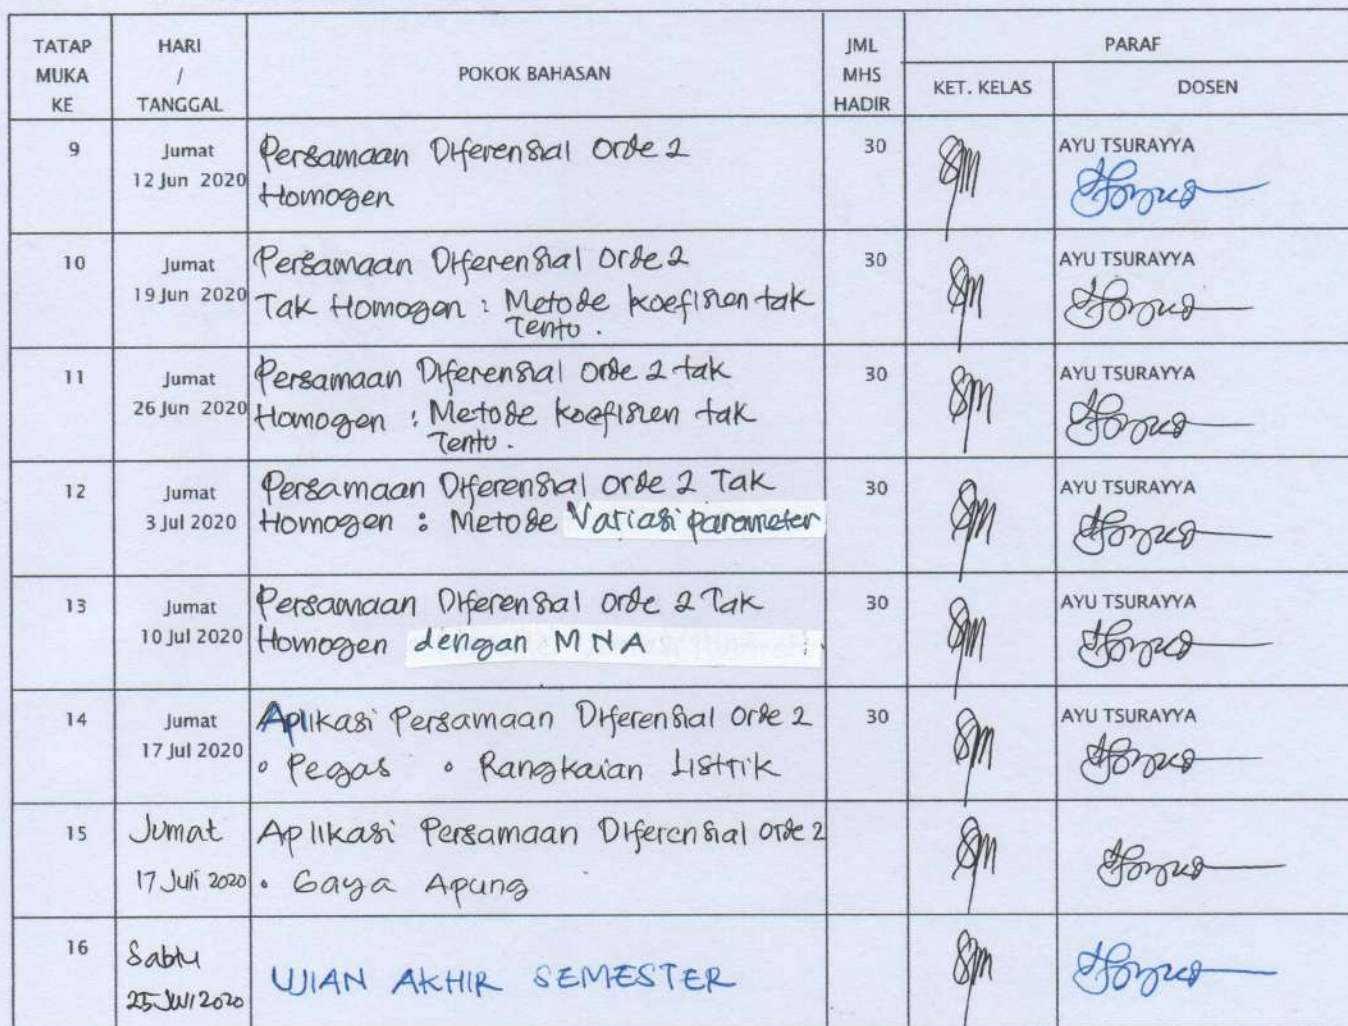 TATAP MUKA KE
HARI / TANGGAL
POKOK BAHASAN
JML MHS HADIR
PARAF
KET. KELAS
DOSEN
9
Jumat
12 Jun 2020
Persamaan Diferensial Orde 2
Homogen
30
AYU TSURAYYA
10
Jumat
19 Jun 2020
Persamaan Diferensial Orde 2
Tak Homogen : Metode koefisien tak
Tentu.
30
AYU TSURAYYA
11
Jumat
26 Jun 2020
Persamaan Diferensial Orde 2 tak
Homogen : Metode koefisien tak
Tentu.
30
AYU TSURAYYA
12
Jumat
3 Jul 2020
Persamaan Diferensial Orde 2 Tak
Homogen : Metode Variasi parameter
30
AYU TSURAYYA
13
Jumat
10 Jul 2020
Persamaan Diferensial Orde 2 Tak
Homogen dengan MNA
30
AYU TSURAYYA
14
Jumat
17 Jul 2020
Aplikasi Persamaan Diferensial Orde 2
• Pegas • Rangkaian Listrik
30
AYU TSURAYYA
15
Jumat
17 Juli 2020
Aplikasi Persamaan Diferensial Orde 2
• Gaya Apung
16
Sabtu
25 Juli 2020
UJIAN AKHIR SEMESTER